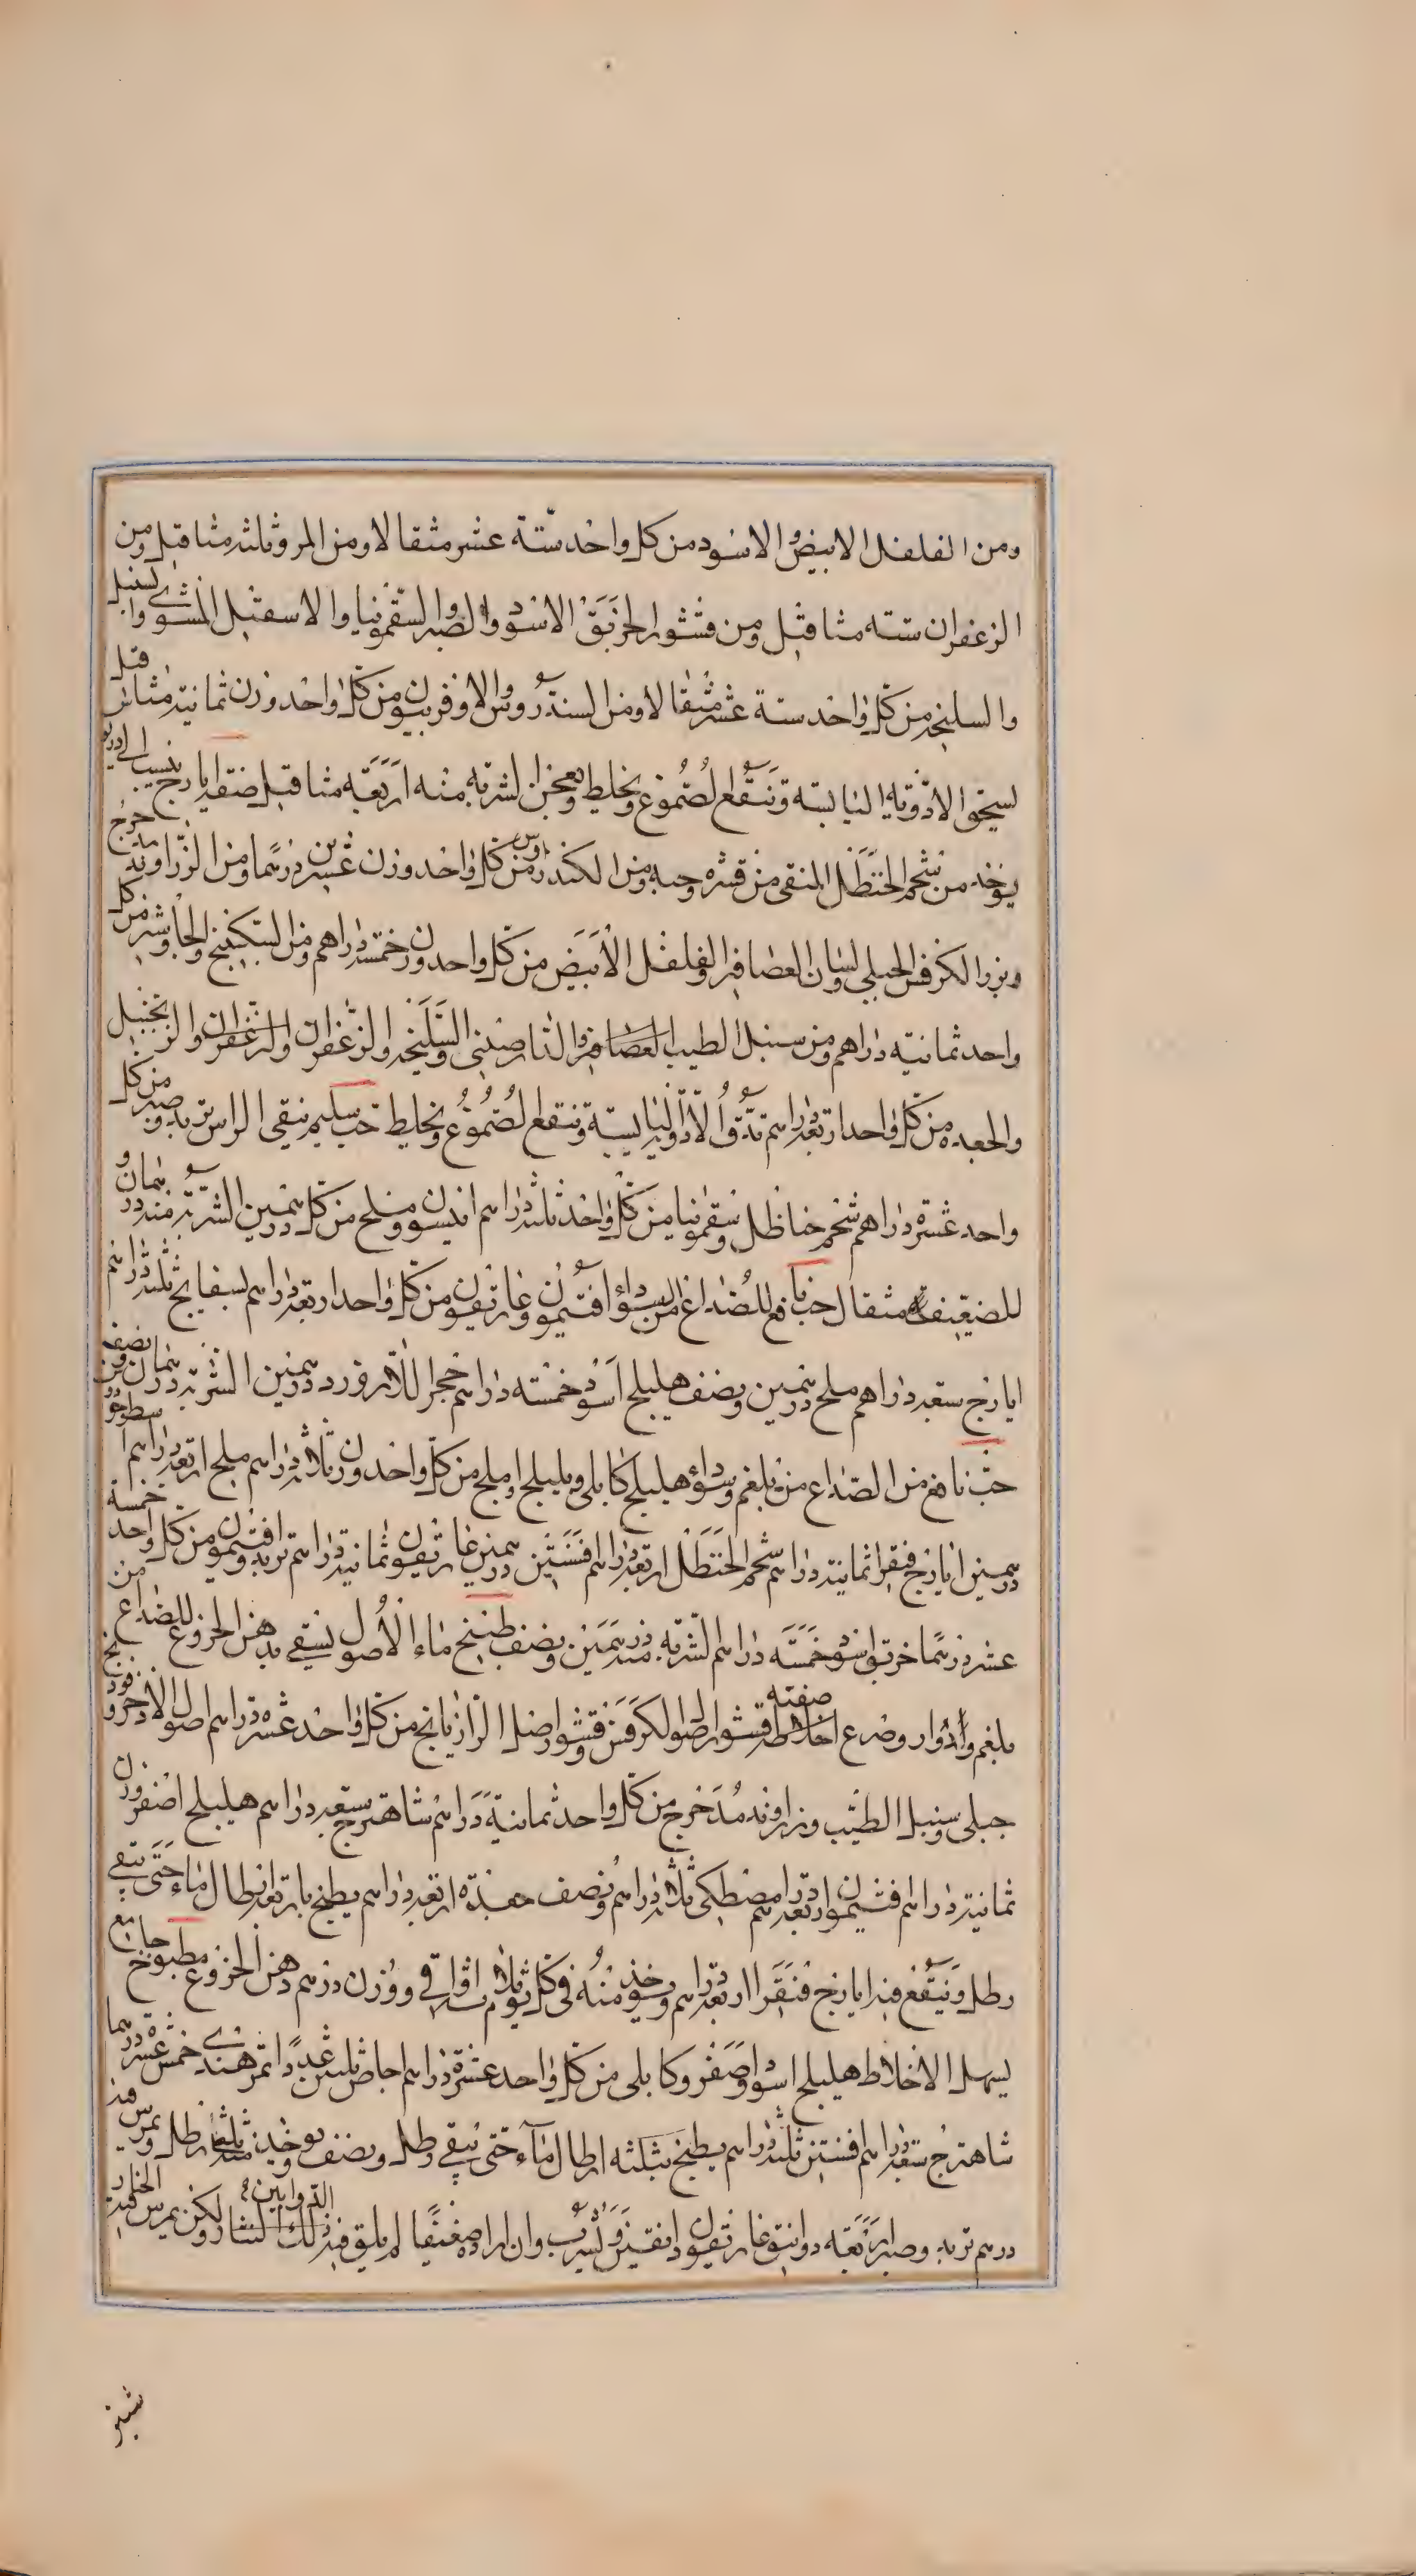 ومن الفلفل الابيض والاسود من كل واحد ستة عشر مثقالا ومن المر وثلثه مثاقيل ومن
الزعفران سته مثاقيل ومن قشور الخربق الاسود والصبر والسقمونيا والاسقيل المشوي والسنبل
والسليخه من كل واحد ستة عشر مثقالا ومن السندروس والاوفربيون من كل واحد وزن ثمانية مثاقيل
يسحق الادويه اليابسه وتنقع الصموغ وتخلط وتعجن الشربه منه اربعة مثاقيل صنعة ايارج ينسب الى
يوخذ من شحم الحنظل المنقى من قشره وحبه ومن الكندروس من كل واحد وزن عشرين درهما ومن الزراوند مدحرج
وبزر الكرفس الجبلى ولسان العصافير والفلفل الابيض من كل واحد وزن خمسة دراهم ومن السكبينج والجاوشير من كل
واحد ثمانيه دراهم ومن سنبل الطيب العصافير والدارصينى والسليخه والزعفران والزعفران والزنجبيل
والجعده من كل واحد اربعة دراهم تدق الادوية اليابسة وتنقع الصموغ وتخلط حب سليم ينقى الراس تربد وصبر من كل
واحد عشرة دراهم شحم حناظل وسقمونيا من كل واحد ثلثة دراهم انيسون وملح من كل درهمين الشربة منه درهمان و
للضعيف مثقال حب نافع للصداع من السوداء افتيمون وغاريقون من كل واحد اربعة دراهم بسفايج ثلثة دراهم
ايارج سبعه دراهم ملح درهمين ونصف هليلج اسود خمسه دراهم حجر اللازورد درهمين الشربة درهمان ونصف
حب نافع من الصداع من بلغم وسوداء هليلج كابلى وبليلج واملج من كل واحد وزن ثلاثة دراهم ملح اربعة دراهم اسطوخودوس
درهمين ايارج فيقرا ثمانية دراهم شحم الحنظل اربعة دراهم افسنتين درهمين غاريقون ثمانية دراهم تربد وافتيمون من كل واحد خمسة
عشر درهما خربق اسود خمسة دراهم الشربه منه درهمين ونصف طبيخ ماء الاصول يسقى بدهن الخروع للصداع من
بلغم وادوار وصرع صفته اخلاطه قشور اصل الكرفس وقشور اصل الرازيانج من كل واحد عشره دراهم اصول الاذخر وفودنج
جبلى وسنبل الطيب وزراوند مدحرج من كل واحد ثمانية دراهم شاهترج سبعه دراهم هليلج اصفر وزن
ثمانية دراهم افتيمون اربعة دراهم مصطكى ثلاثة دراهم ونصف جعده اربعة دراهم يطبخ باربعة ارطال ماء حتى يبقى
رطل وينقع فيه ايارج فيقرا اربعة دراهم ويوخذ منه فى كل يوم ثلاث اواقى ووزن درهم دهن الخروع مطبوخ جامع
يسهل الاخلاط هليلج اسود واصفر وكابلى من كل واحد عشرة دراهم اجاص ثلثين عددا تمر هندى خمسة عشر درهما
شاهترج سبعة دراهم افسنتين ثلثة دراهم يطبخ بثلثه ارطال ماء حتى يبقى رطل ونصف ويوخذ منه ثلثا رطل ويمرس فيه
درهم تربد وصبر اربعة دوانيق غاريقون دانقين ويشرب وان اراده ضعيفا لم يلق فيه تلك الدوا بين السنا ولكن يمرس فيه الخيار
شنبر